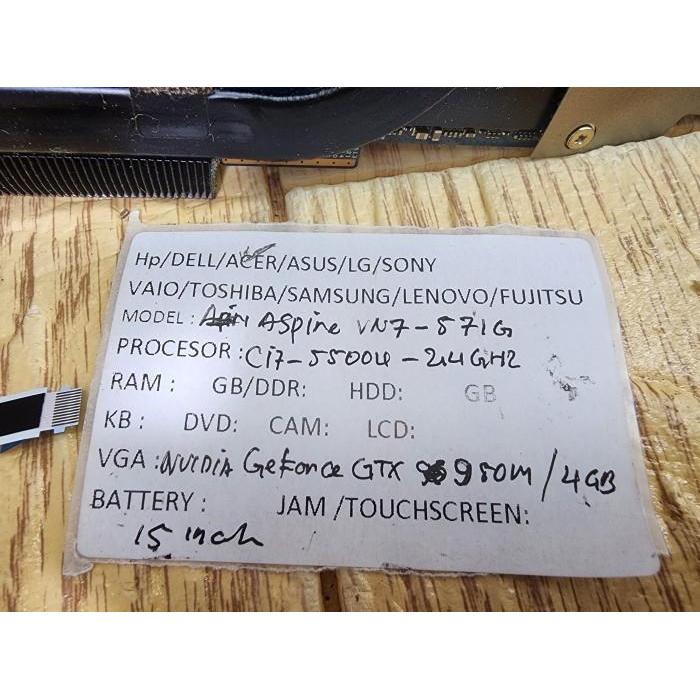 Hp/DELL/ACER/ASUS/LG/SONY
VAIO/TOSHIBA/SAMSUNG/LENOVO/FUJITSU
MODEL: Aspire VN7-571G
PROCESOR: Ci7-5500u-2.4GHZ
RAM: GB/DDR: HDD: GB
KB: DVD: CAM: LCD:
VGA: NVIDIA GeForce GTX 950M/4GB
BATTERY: JAM/TOUCHSCREEN:
15 inch